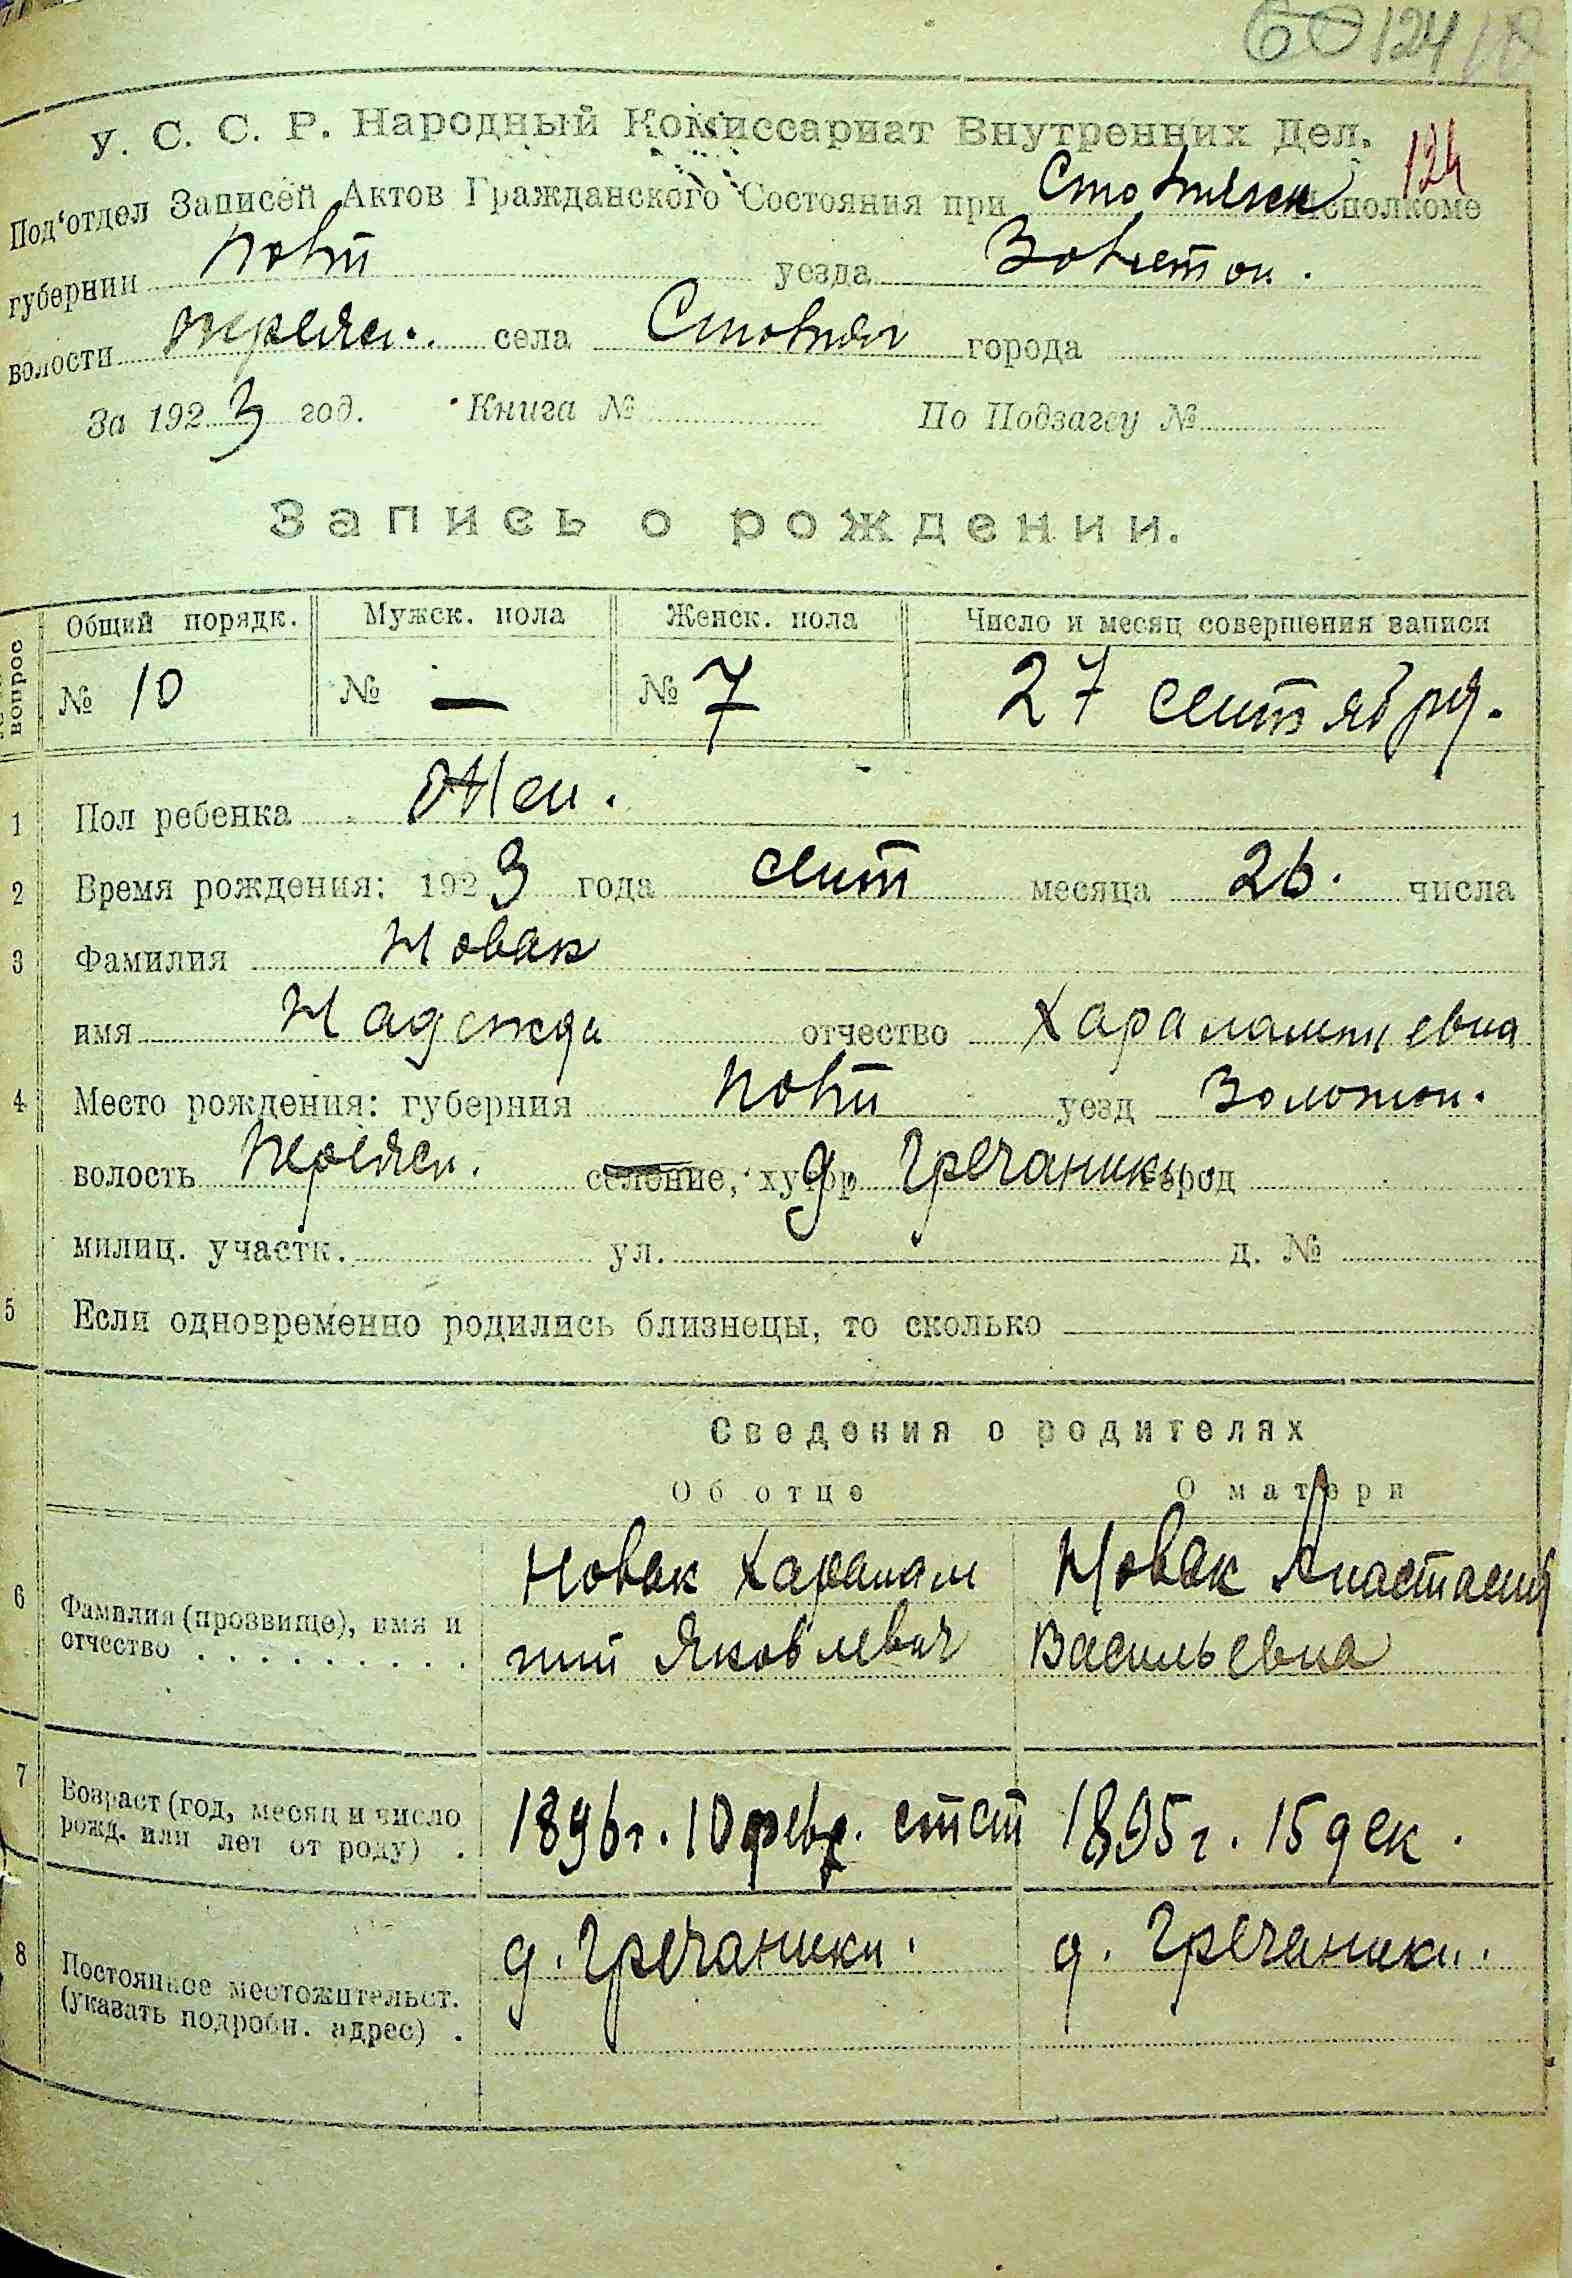 60 124
У. С. С. Р. Народный Комиссариат Внутренних Дел.
124
Под'отдел Записей Актов Гражданского Состояния при Исполкоме
губернии уезда
волости села города
За 1923 год. Книга № По Подзагсу №
Запись о рождении.
вопрос Общий порядк. Мужск. пола Женск. пола Число и месяц совершения записи
№ 10 № — № 7 27 сентября.
1 Пол ребенка Жен.
2 Время рождения: 1923 года сент месяца 26. числа
3 Фамилия Новак
имя Надежда отчество Харалампиевна
4 Место рождения: губерния уезд Золотон.
волость селение, хутор д. Гречаники город
милиц. участк. ул. д. №
5 Если одновременно родились близнецы, то сколько
Сведения о родителях
Об отце О матери
6 Фамилия (прозвище), имя и Новак Харалам Новак Анастасия
отчество . . . . . . . . . пий Яковлевич Васильевна
7 Возраст (год, месяц и число 1896 г. 10 февр. ст ст 1895 г. 15 дек.
рожд. или лет от роду) .
8 Постоянное местожительст. д. Гречаники. д. Гречаники.
(указать подробн. адрес) .